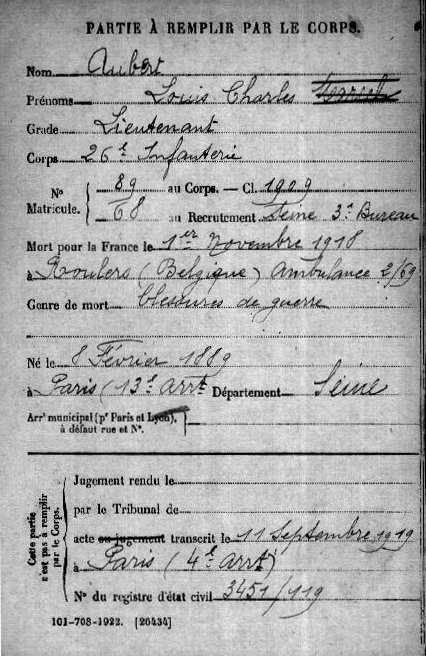 PARTIE À REMPLIR PAR LE CORPS.
Nom Aubert
Prénoms Louis Charles Marcel
Grade Lieutenant
Corps 26e Infanterie
No Matricule. 89 au Corps. — Cl. 1909
68 au Recrutement Seine 3e Bureau
Mort pour la France le 1er Novembre 1918
à Roulers (Belgique) Ambulance 2/69
Genre de mort blessures de guerre
Né le 8 Février 1889
à Paris (13e arrt Département Seine
Arrt municipal (pr Paris et Lyon),
à défaut rue et No.
Cette partie
n'est pas à remplir
par le Corps.
Jugement rendu le
par le Tribunal de
acte ou jugement transcrit le 11 Septembre 1919
à Paris (4e arrt)
No du registre d'état civil 3451/119
101-708-1922. [26434]